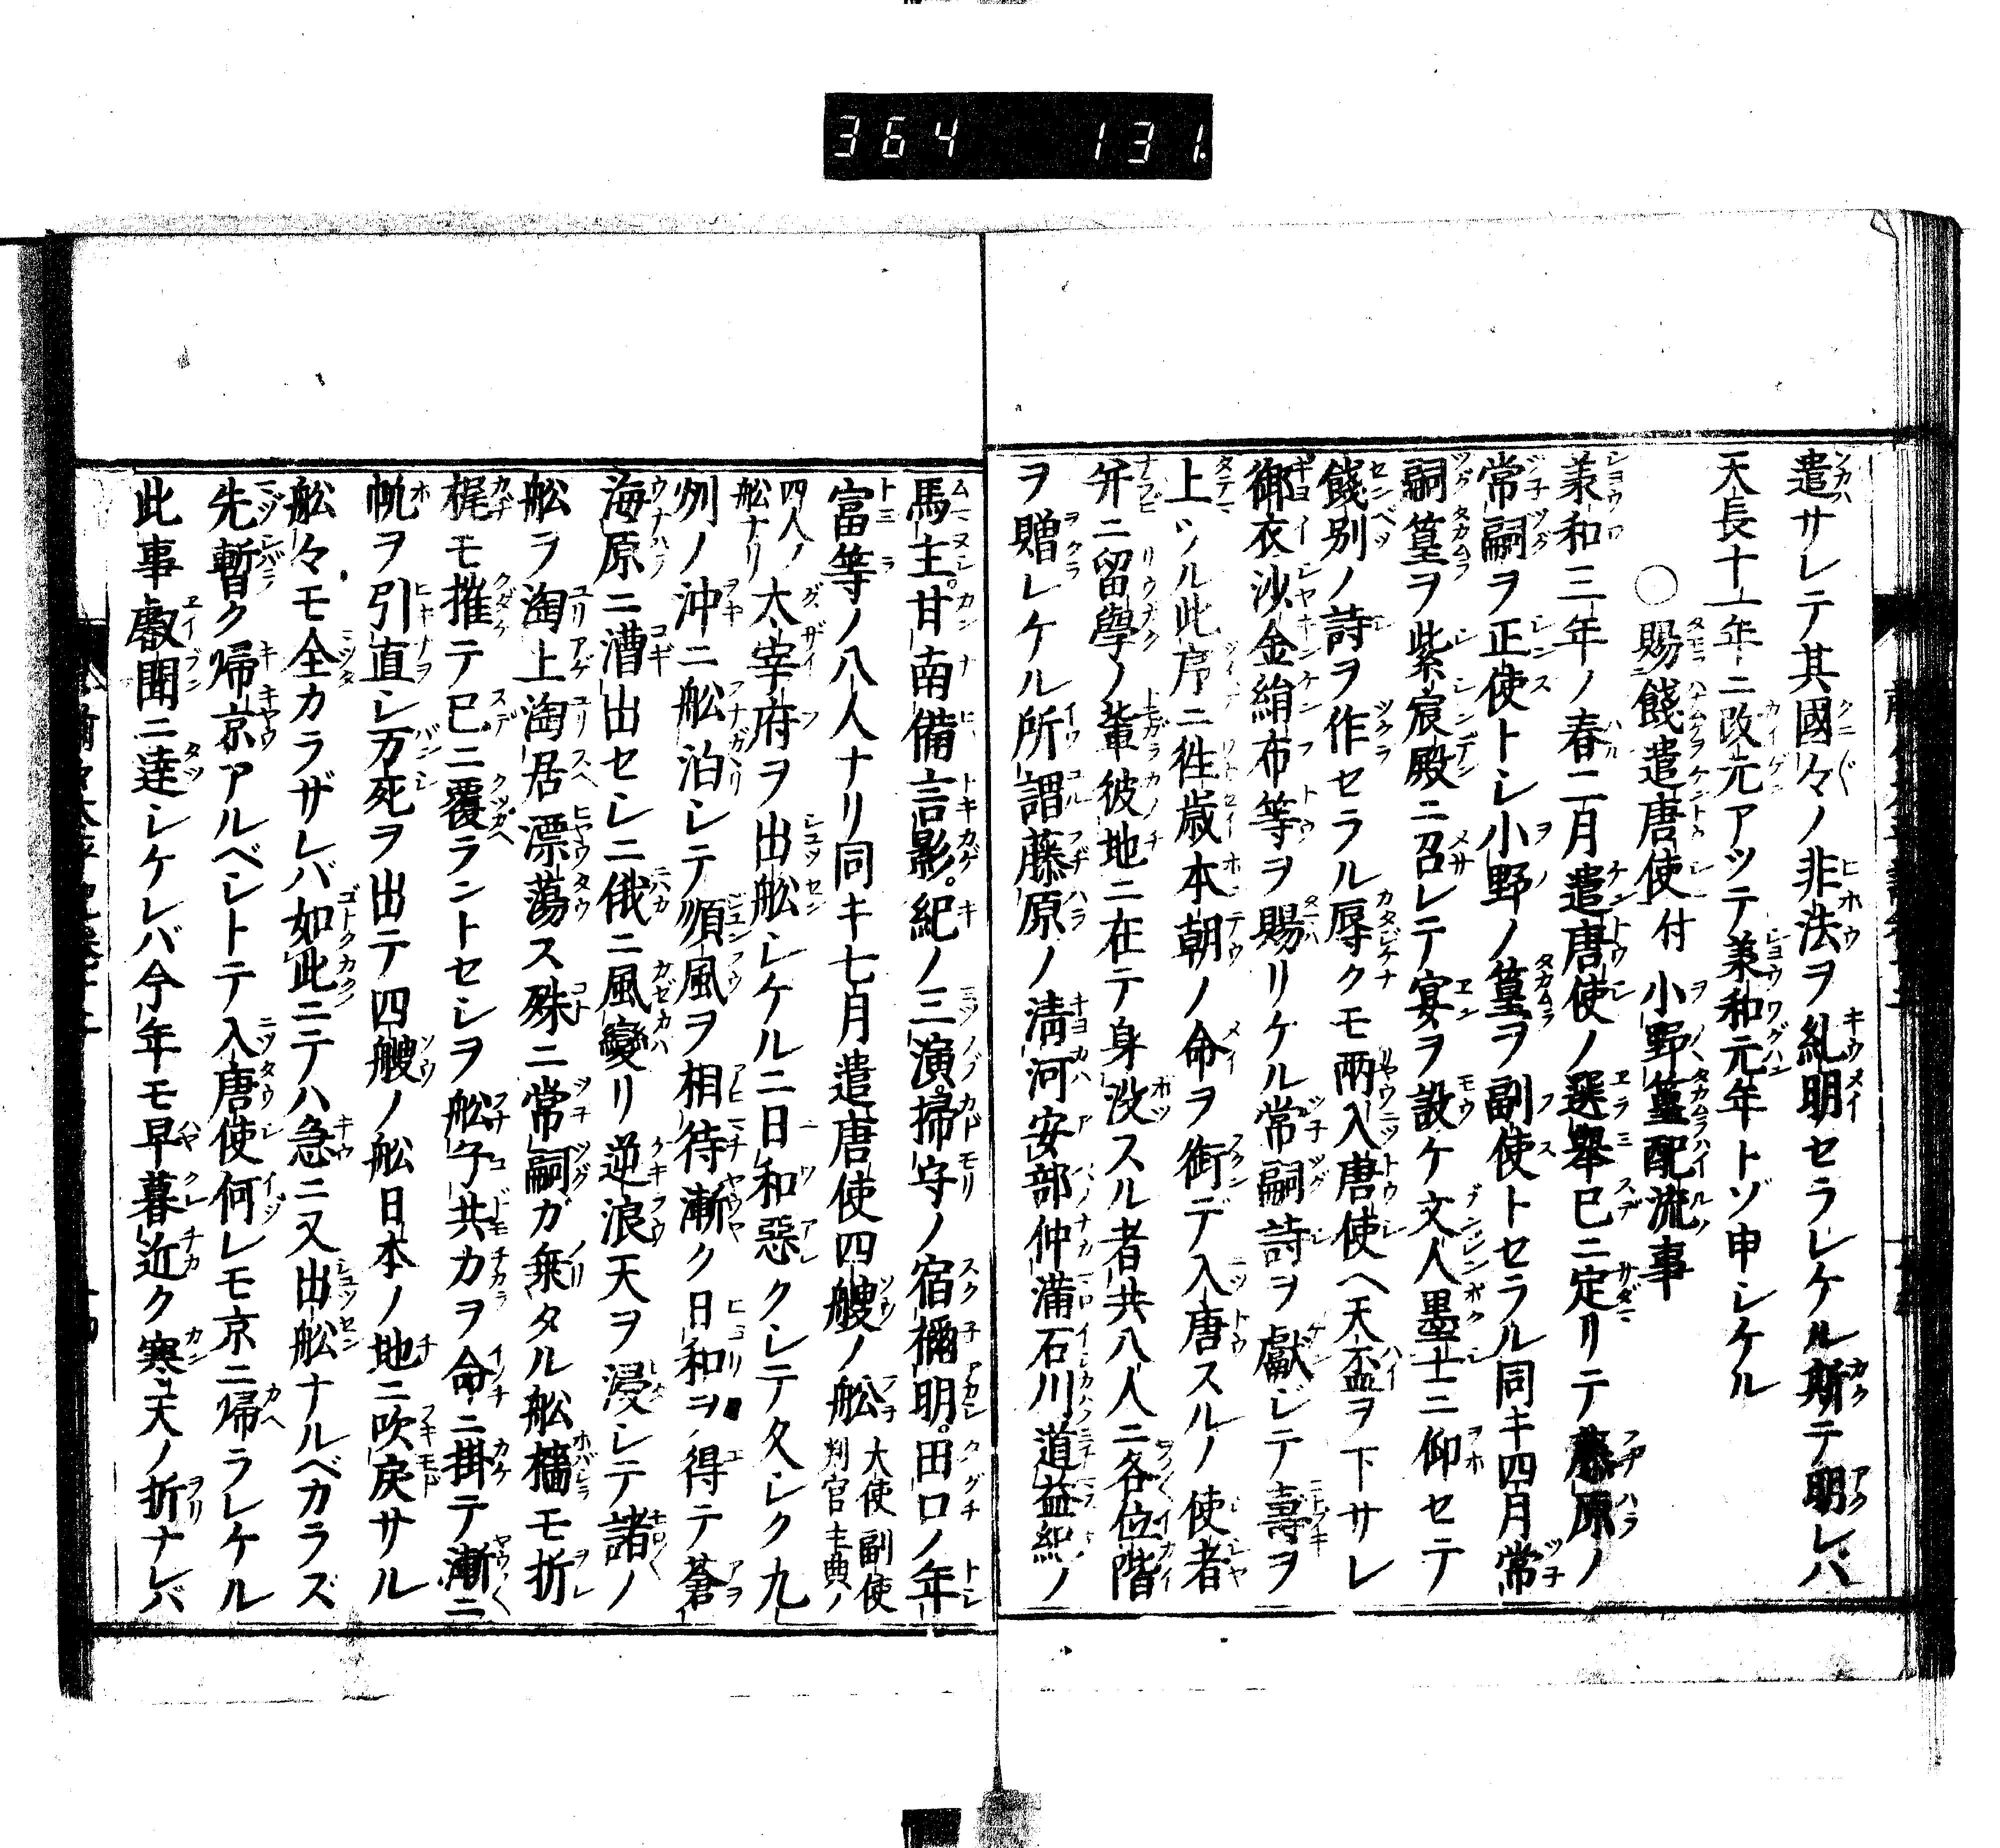 364 131.
遣サレテ其國々ノ非法ヲ糺明セラレケル斯テ明レバ
天長十一年ニ改元アツテ美和元年トゾ申シケル
○賜餞遣唐使付小野篁配流事
美和三年ノ春二月遣唐使ノ選舉已ニ定リテ藤原ノ
常嗣ヲ正使トシ小野ノ篁ヲ副使トセラル同キ四月常
嗣篁ヲ紫宸殿ニ召レテ宴ヲ設ケ文人墨士ニ仰セテ
餞別ノ詩ヲ作セラル辱クモ兩入唐使ヘ天盃ヲ下サレ
御衣沙金絹布等ヲ賜リケル常嗣詩ヲ獻ジテ壽ヲ
上ツル此序ニ徃歳本朝ノ命ヲ銜デ入唐スルノ使者
并ニ留學ノ輩彼地ニ在テ身沒スル者共八人ニ各位階
ヲ贈レケル所謂藤原ノ淸河安部仲滿石川道益紀ノ
馬主甘南備言影紀ノ三演掃守ノ宿禰明田口ノ年
富等ノ八人ナリ同キ七月遣唐使四艘ノ舩大使副使判官主典ノ
四人ノ舩ナリ太宰府ヲ出舩シケルニ日和惡クシテ久シク九
刕ノ沖ニ舩泊シテ順風ヲ相待漸ク日和ヲ得テ蒼
海原ニ漕出セシニ俄ニ風變リ逆浪天ヲ浸シテ諸ノ
舩ヲ淘上淘居漂蕩ス殊ニ常嗣ガ乗タル舩檣モ折
梶モ摧テ已ニ覆ラントセシヲ舩子共力ヲ命ニ掛テ漸ニ
帆ヲ引直シ万死ヲ出テ四艘ノ舩日本ノ地ニ吹戻サル
舩々モ全カラザレバ如此ニテハ急ニ又出舩ナルベカラズ
先暫ク帰京アルベシトテ入唐使何レモ京ニ帰ラレケル
此事叡聞ニ達シケレバ今年モ早暮近ク寒天ノ折ナレバ